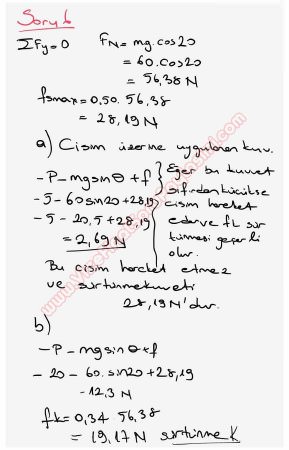 Soru 6
ΣFy=0 FN= mg.cos20
= 60.cos20
= 56,38 N
fsmax = 0,50. 56,38
= 28,19 N
a) Cisim üzerine uygulanan kuv.
-P-mgsinθ+f
-5-60sin20+28,19
-5-20,5+28,19
= 2,69 N
Eğer bu kuvvet
sıfırdan küçükse
cisim hareket
eder ve fk sür
tünmesi geçerli
olur.
Bu cisim hareket etmez
ve sürtünme kuvveti
28,19 N'dur.
b)
-P-mgsinθ+f
-20-60.sin20+28,19
-12,3 N
fk=0,34 56,38
= 19,17 N sürtünme K